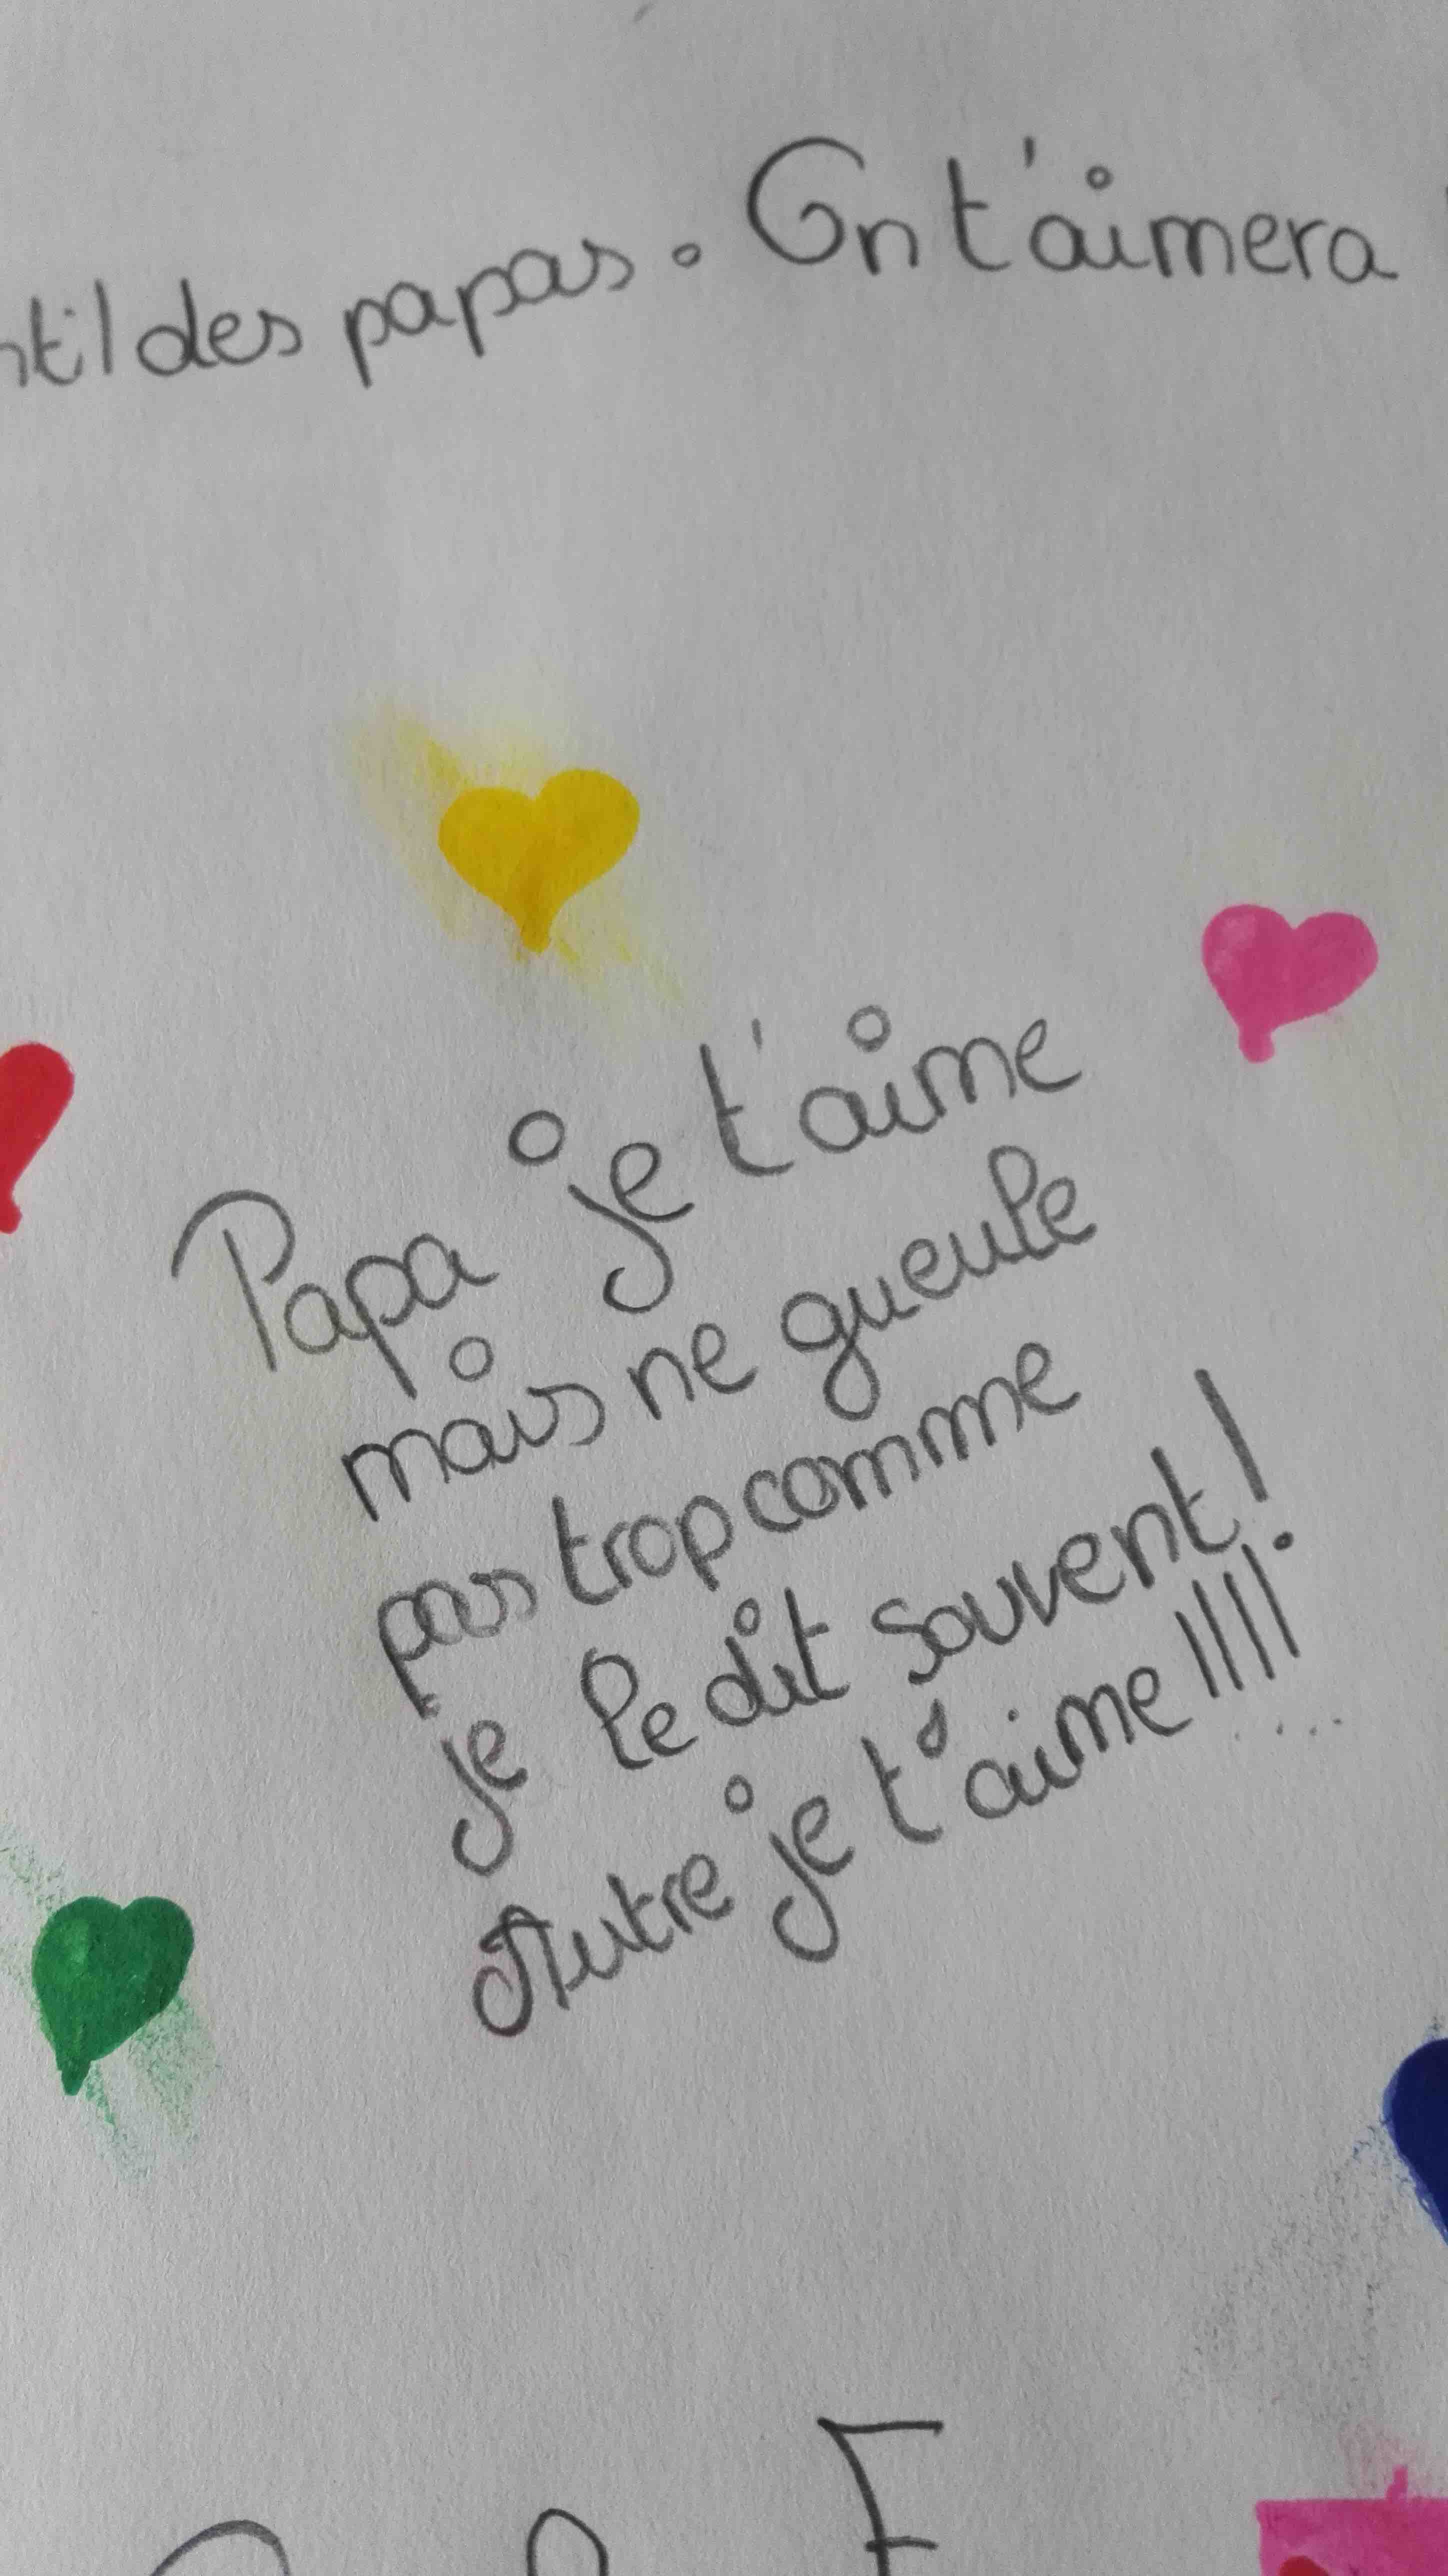 des papas. On t'aimera
Papa je t'aime
mais ne gueule
pas trop comme
je le dit souvent!
Autre je t'aime!!!!